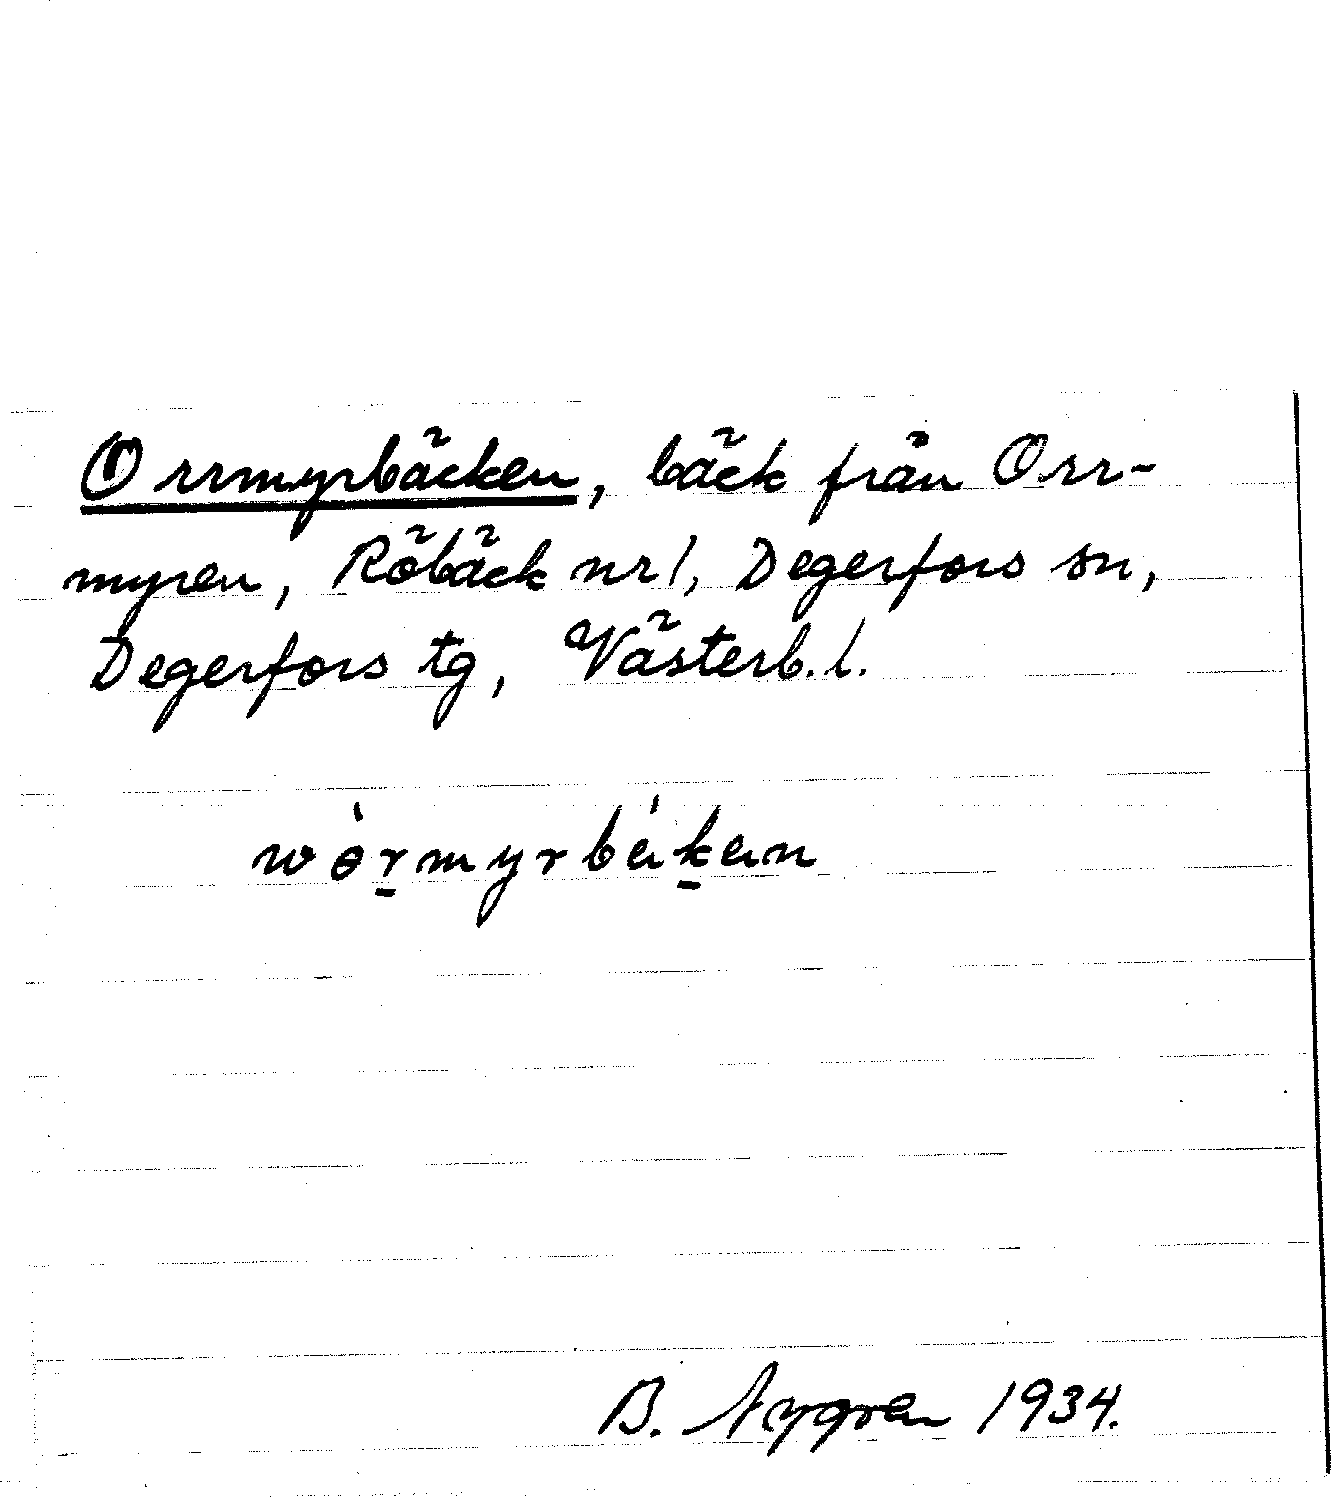 Orrmyrbäcken, bäck från Orr-
myren, Röbäck nr 1, Degerfors sn,
Degerfors tg, Västerb. l.
B. Nygren 1934.